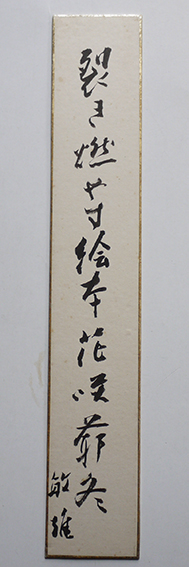 裂き燃やす絵本花咲爺冬
敏雄